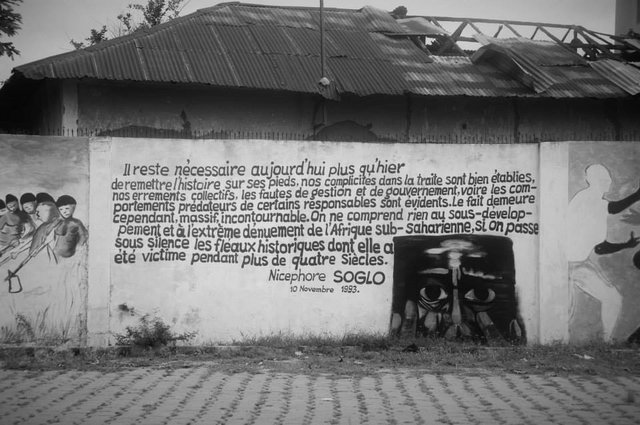 Il reste nécessaire aujourd'hui plus qu'hier
de remettre l'histoire sur ses pieds, nos complicités dans la traite sont bien établies,
nos errements collectifs, les fautes de gestion et de gouvernement, voire les com-
portements prédateurs de certains responsables sont évidents. Le fait demeure
cependant, massif, incontournable. On ne comprend rien au sous-dévelop-
pement et à l'extrême dénuement de l'Afrique sub-saharienne, si on passe
sous silence les fléaux historiques dont elle a
été victime pendant plus de quatre siècles.
Nicephore SOGLO
10 Novembre 1993.